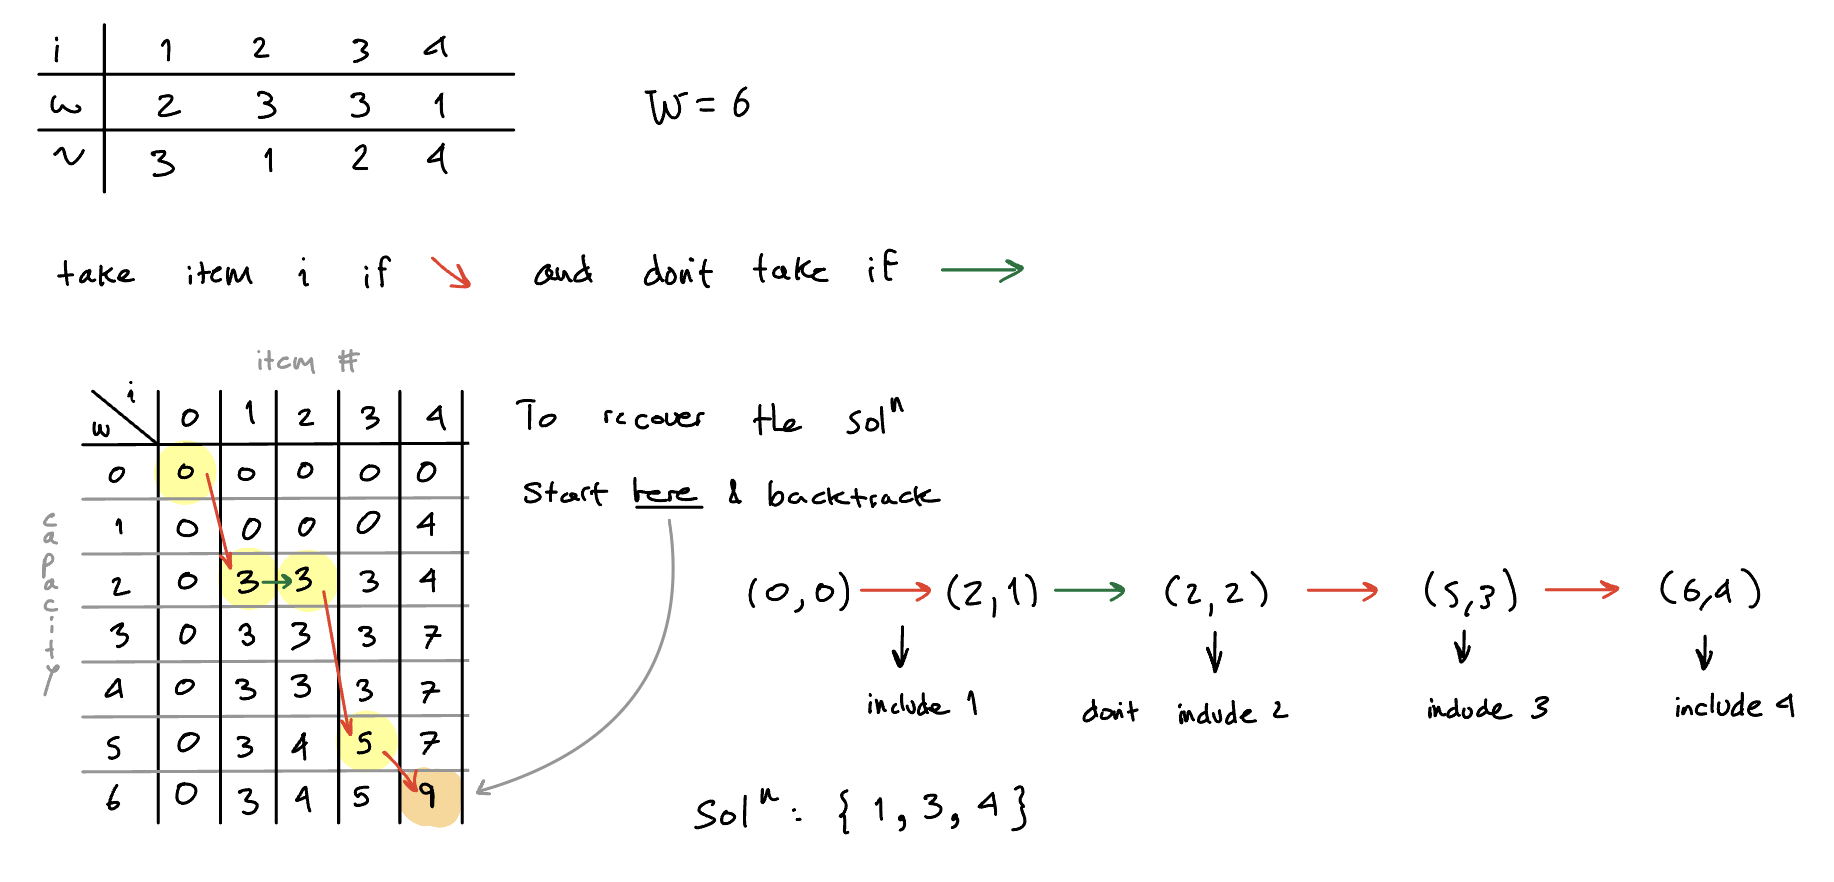 i 1 2 3 4
w 2 3 3 1
v 3 1 2 4
W = 6
take item i if ↘ and don't take if →
item #
capacity
w \ i 0 1 2 3 4
0 0 0 0 0 0
1 0 0 0 0 4
2 0 3 3 3 4
3 0 3 3 3 7
4 0 3 3 3 7
5 0 3 4 5 7
6 0 3 4 5 9
To recover the solⁿ
start here & backtrack
(0,0) → (2,1) → (2,2) → (5,3) → (6,4)
include 1 don't include 2 include 3 include 4
Solⁿ: { 1, 3, 4 }